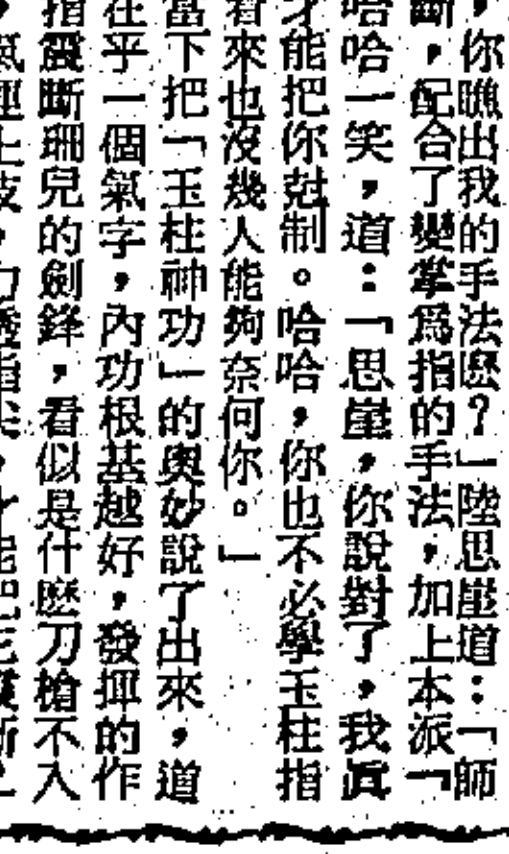 ，你瞧出我的手法麽？」陸思崖道：「師
斷，配合了變掌爲指的手法，加上本派「
哈哈一笑，道：「思崖，你說對了，我眞
才能把你尅制。哈哈，你也不必學玉柱指
看來也沒幾人能夠奈何你。」
當下把「玉柱神功」的奧妙說了出來，道
在乎一個氣字，內功根基越好，發揮的作
指震斷珊兒的劍鋒，看似是什麽刀槍不入